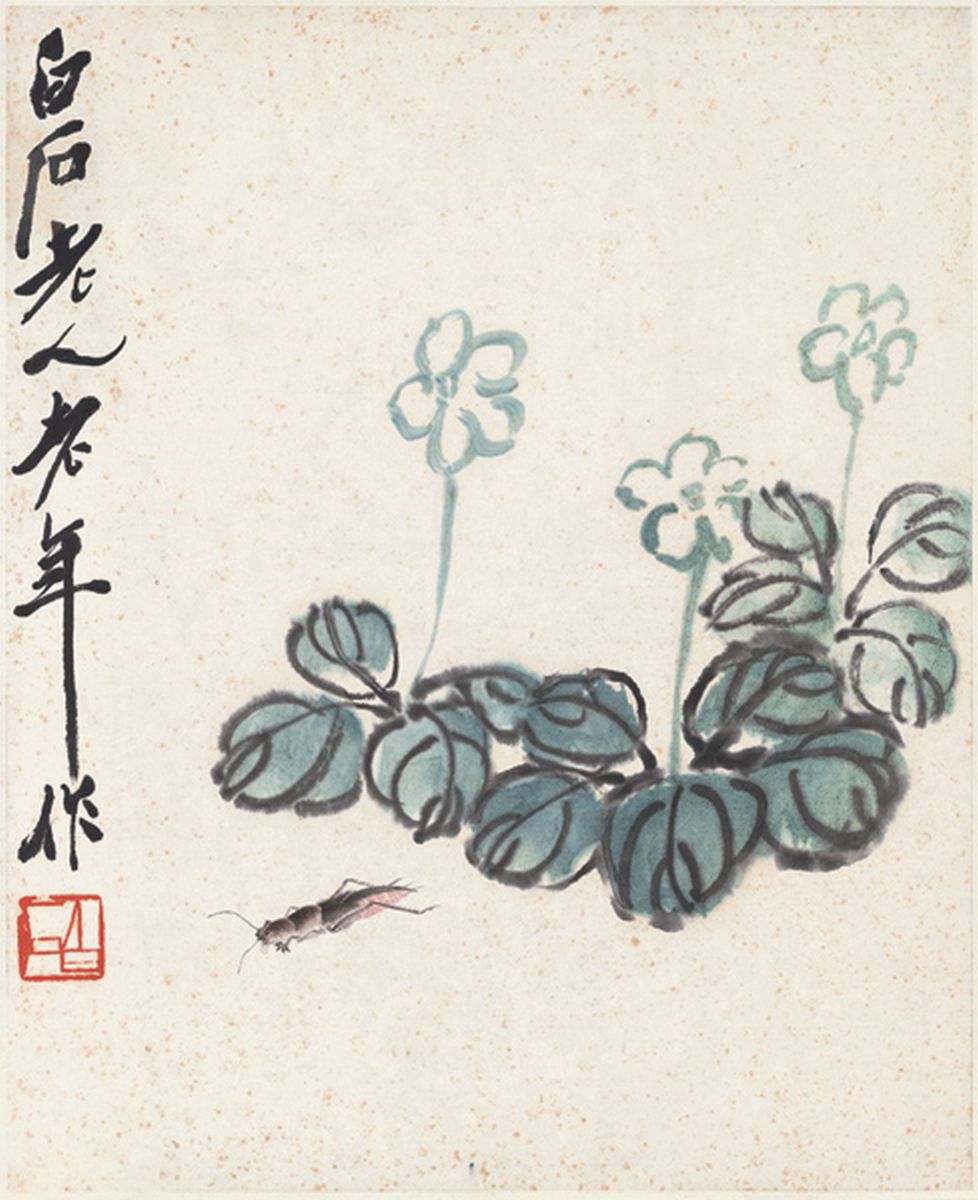 白石老人老年作